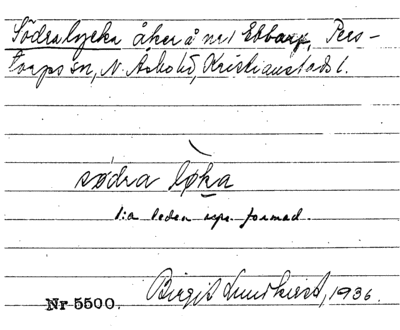 Södralycka åker å nr 1 Ebbarp, Pers-
torps sn, N. Åsbo hd, Kristianstads l.
södra lø̀ka
1:a leden upr. formad.
Birgit Lundkvist, 1936.
Nr 5500.